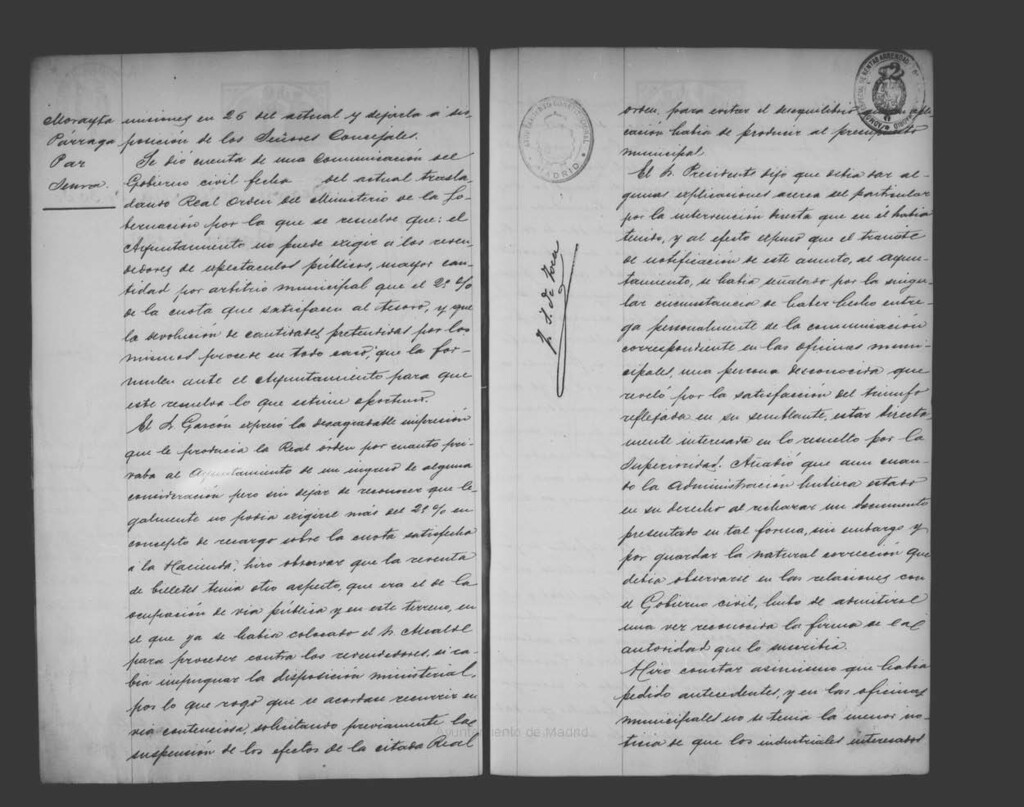 Morayta
Párraga
Paz
Senra.
misiones en 26 del actual y dejarla a dis-
posición de los Señores Concejales.
Se dió cuenta de una comunicación del
Gobierno civil fecha del actual trasla-
dando Real Orden del Ministerio de la Go-
bernación por la que se resuelve que: el
Ayuntamiento no puede exigir a los reven-
dedores de espectaculos públicos, mayor can-
tidad por arbitrio municipal que el 2% 
de la cuota que satisfacen al Tesoro, y que
la devolución de cantidades pretendidas por los
mismos procede en todo caso, que la for-
mulen ante el Ayuntamiento para que
este resuelva lo que estime oportuno.
El Sr. Garzón expresó la desagradable impresión
que le producia la Real órden por cuanto pri-
vaba al Ayuntamiento de un ingreso de alguna
consideración pero sin dejar de reconocer que le-
galmente no podia exigirse más del 2% en
concepto de recargo sobre la cuota satisfecha
a la Hacienda; hizo observar que la reventa
de billetes tenia otro aspecto, que era el de la
ocupación de via pública y en este terreno, en
el que ya se habia colocado el Sr. Alcalde
para proceder contra los revendedores, si ca-
bia impugnar la disposición ministerial,
por lo que rogó que se acordase recurrir en
via contenciosa, solicitando previamente la
suspensión de los efectos de la citada Real
orden, para evitar el desequilibrio
cación habia de producir al presupuesto
municipal.
El Sr. Presidente dijo que debia dar al-
gunas explicaciones acerca del particular
por la intervención directa que en el habia
tenido, y al efecto expuso que el tramite
de notificación de este asunto, al Ayun-
tamiento, se habia señalado por la singu-
lar circunstancia de haber hecho entre-
ga personalmente de la comunicación
correspondiente en las oficinas muni-
cipales, una persona desconocida que
reveló por la satisfacción del triunfo
reflejada en su semblante, estar directa-
mente interesada en lo resuelto por la
Superioridad. Añadió que aun cuan-
do la Administración hubiera estado
en su derecho al rechazar un documento
presentado en tal forma, sin embargo y
por guardar la natural corrección que
debia observarse en las relaciones con
el Gobierno civil, hubo de admitirse
una vez reconocida la firma de la
autoridad que lo suscribia.
Hizo constar asimismo que habia
pedido antecedentes, y en las oficinas
municipales no se tenia la menor no-
ticia de que los industriales interesados
MADRID
Ayuntamiento de Madrid